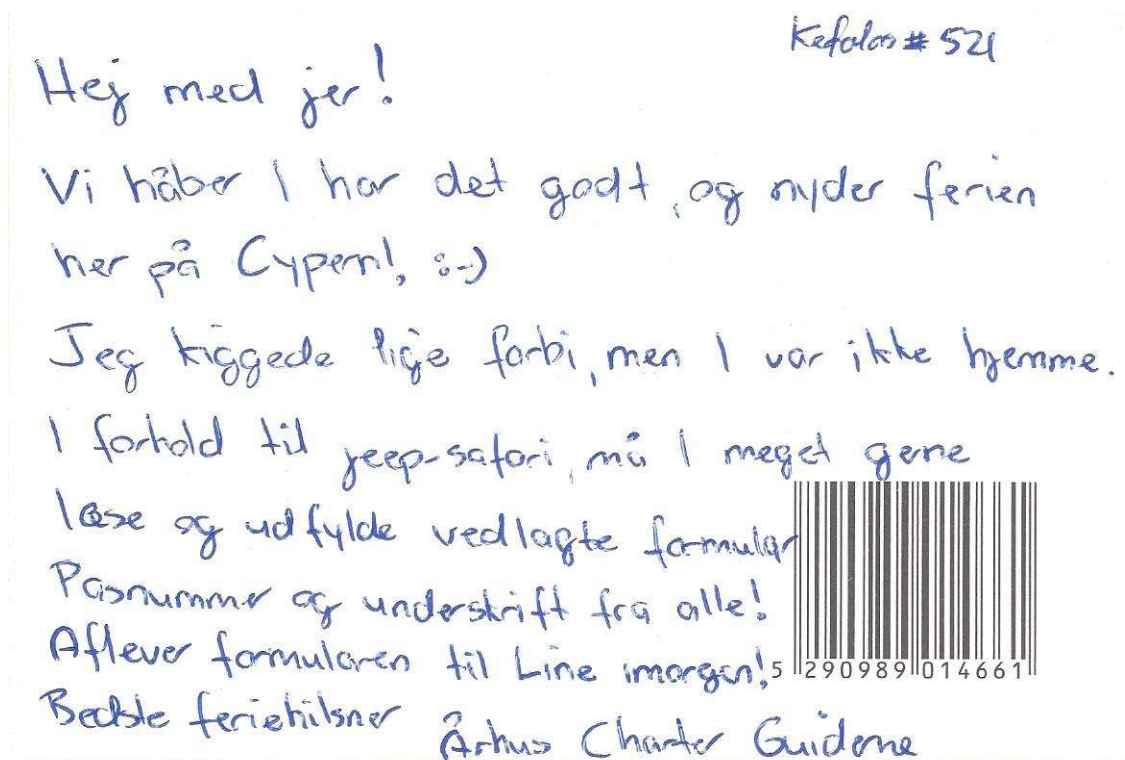 Kefalos # 521
Hej med jer!
Vi håber I har det godt, og nyder ferien
her på Cypern!, :-)
Jeg kiggede lige forbi, men I var ikke hjemme.
I forhold til jeep-safari, må I meget gerne
læse og udfylde vedlagte formular
Pasnummer og underskrift fra alle!
Aflever formularen til Line imorgen!
5 290989 014661
Bedste feriehilsner
Århus Charter Guiderne